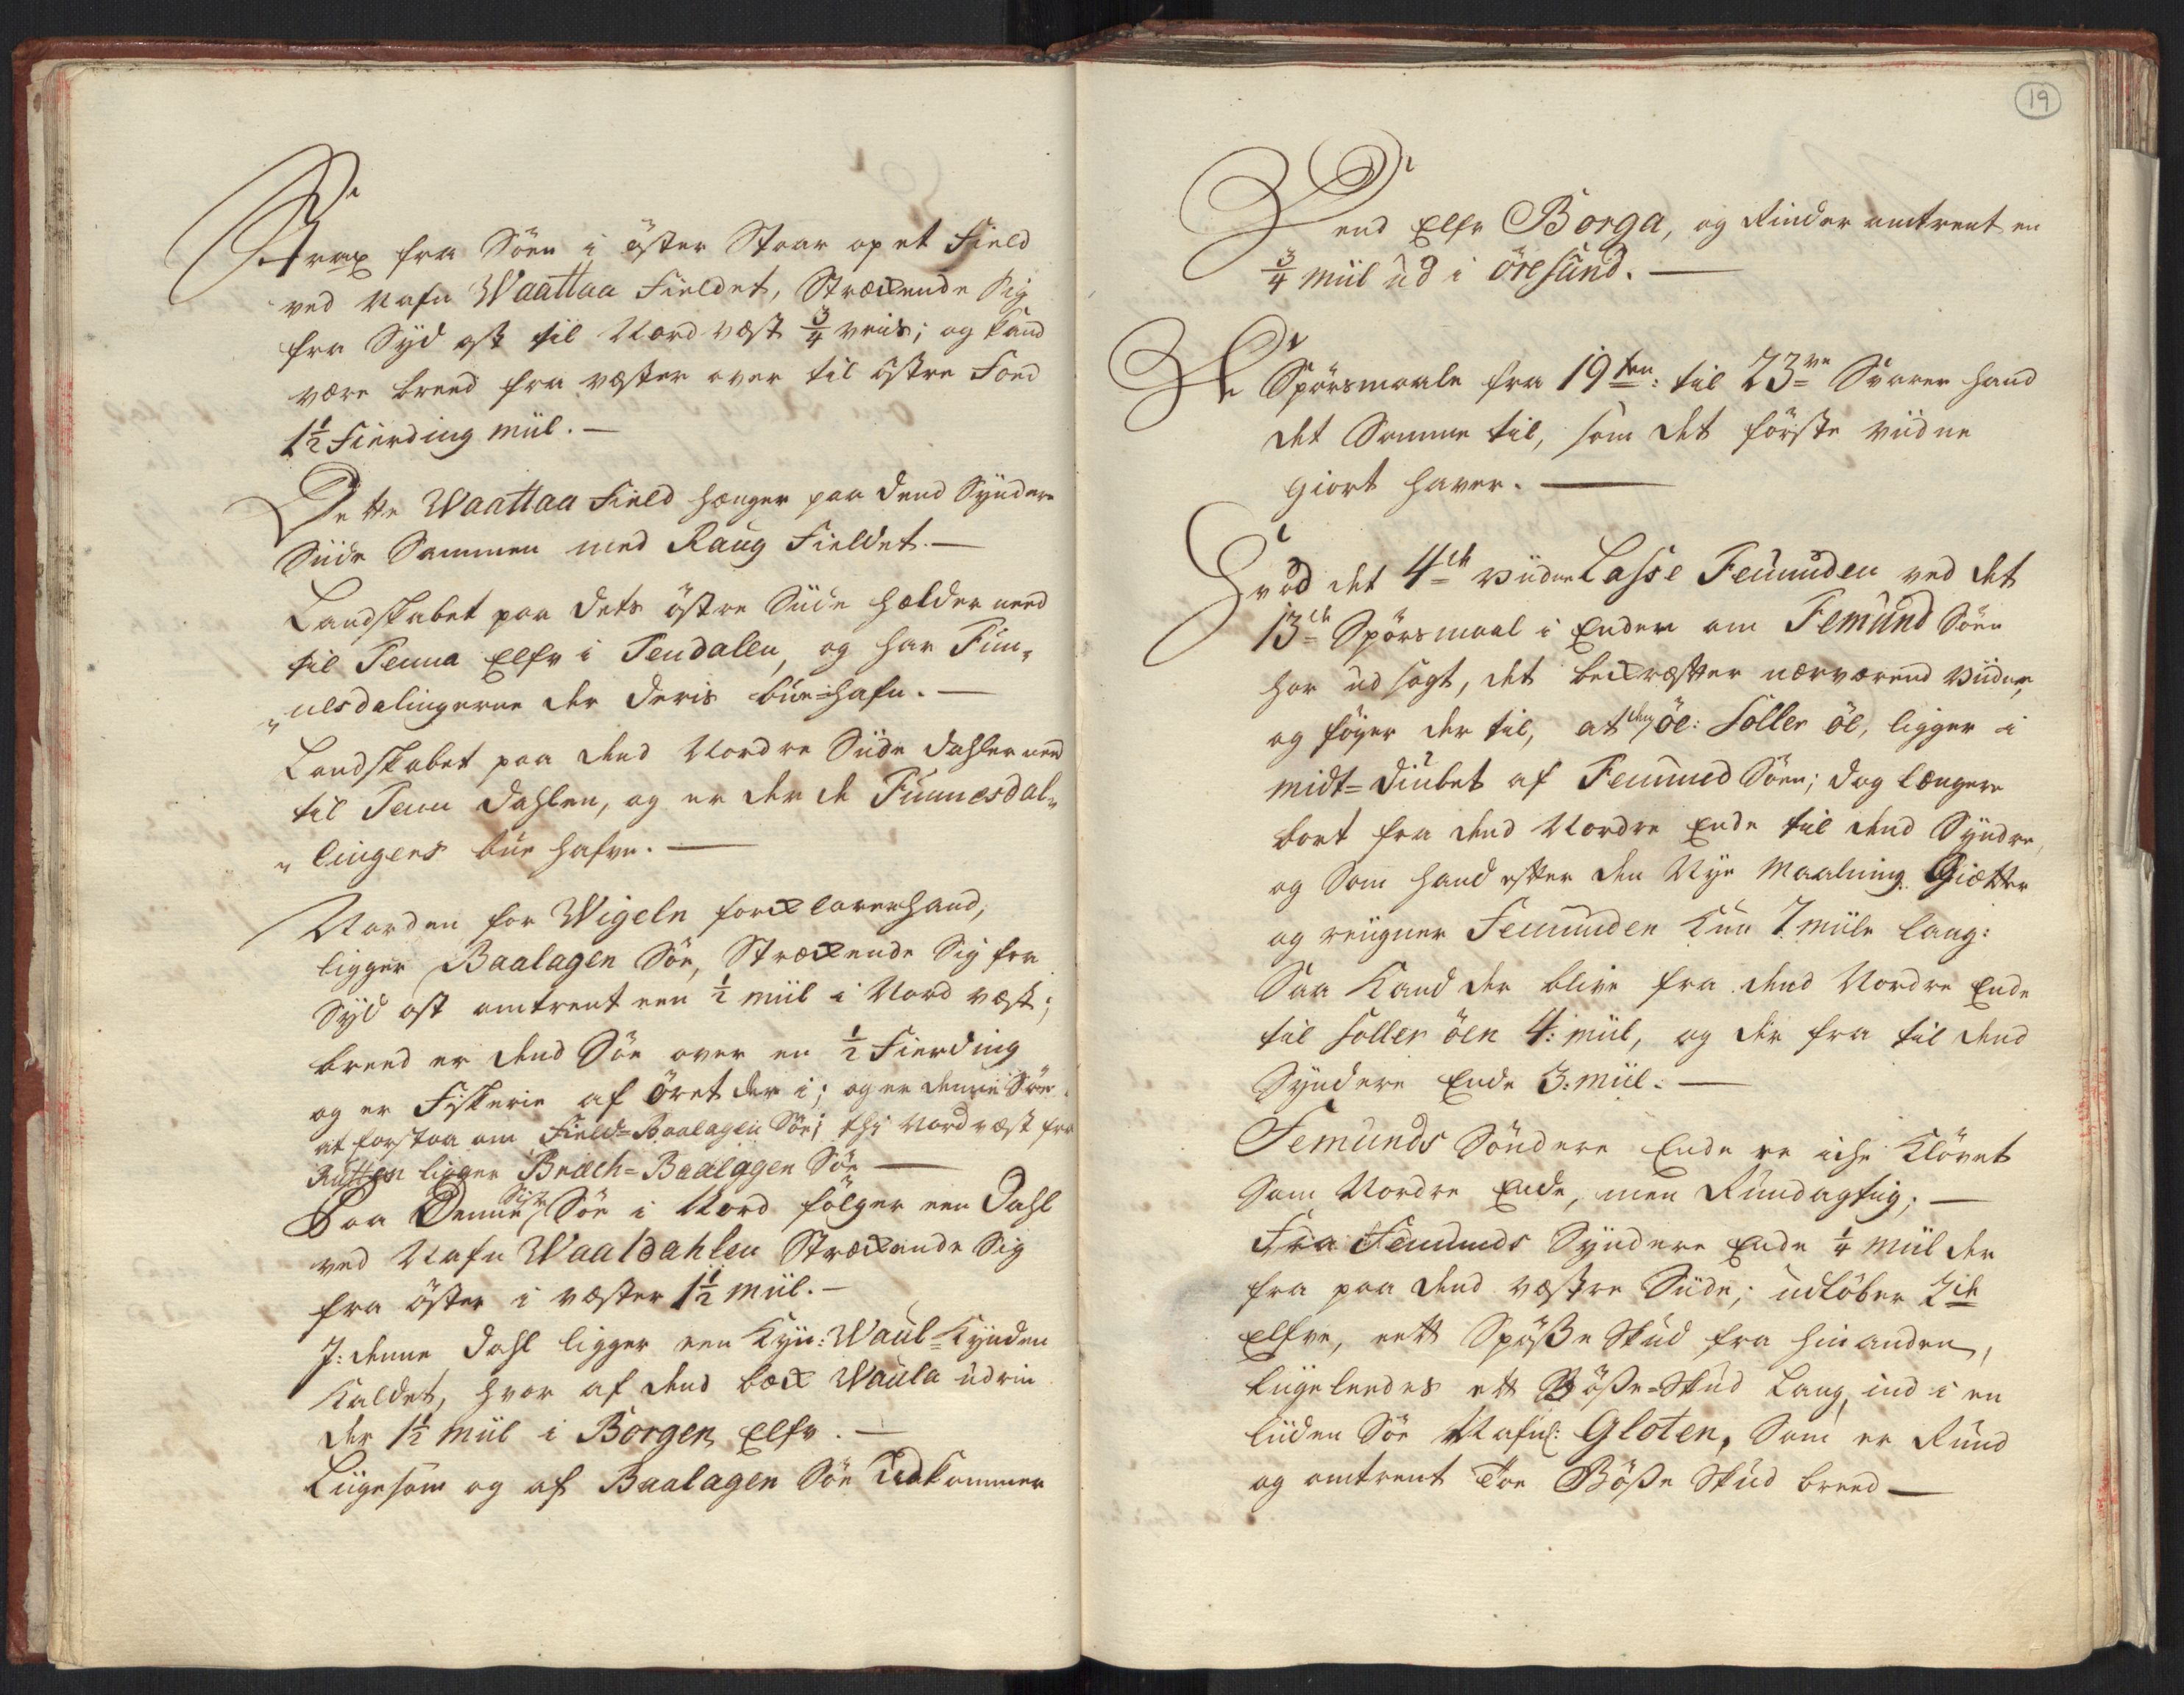 Strax fra Söen i öster Staar op et Field
ved Nafn Waattaa Fieldet, Strækende Sig
fra Syd ost til Nord vest 3/4 veis; og kand
være breed fra vester over til östre Foed
1 1/2 Fierding miil. —
Dette Waattaa Field hænger paa dend Syndere
Siide Sammen med Raug Fieldet. —
Landskabet paa dets östre Siide helder need
til Tenna Elfv i Tendalen, og har Fun-
nesdalingerne der deris bue-hafn. —
Landskabet paa dend Nordre Siide dahler need
til Tenn dahlen, og er der de Funnesdal-
lingers bue hafn. —
Norden for Wigeln forklarer hand,
ligger Baalagen Söe, Strækende Sig fra
Syd ost omtrent een 1/2 miil i Nord vest;
breed er dend Söe over en 1/2 Fierding
og er Fiskerie af öret der i; og er denne Söe
at forstaa om Field-Baalagen Söe; thi Nord vest fra
Rutten ligger Bræch-Baalagen Söe —
Paa Denne Sidste Söe i Nord fölger een Dahl
ved Nafn Waaldahlen Strækende Sig
fra öster i vester 1 1/2 miil. —
J: denne Dahl ligger een Kyn: Waul-Kynden
kaldet, hvor af dend bæk Waula udrin
der 1 1/2 miil i Borgen Elfv. —
Liigesom og af Baalagen Söe udkommer
19
Dend Elfv Borga, og Rinder omtrent en
3/4 miil ud i öresund. —
De Spörsmaale fra 19ten: til 23de Svarer hand
det Samme til, som det förste viidne
giort haver. —
Hvad det 4de viidne Lasse Femunden ved det
13de Spörsmaal i Enden om Femund Söen
har udsagt, det bekrefter nærværend viidne,
og föyer der til, at den öe: Soller öe, ligger i
midt-diubet af Femund Söen; dog længere
bort fra dend Nordre Ende til dend Syndre,
og Som hand efter den Nye Maalning Giætter
og reigner Femunden kun 7 miile lang:
Saa kand der blive fra dend Nordre Ende
til Soller öen 4: miil, og der fra til dend
Syndere Ende 3: miil. —
Femunds Söndere Ende er iche klövet
Som Nordre Ende, men Rundagtig; —
Fra Femunds Syndere Ende 1/4 miil der
fra paa dend vestre Siide; udlöber 2de
Elfve, ett Böße Skud fra hinanden,
liigeleedes ett Böße-Skud Lang, ind i en
liiden Söe Nafnl: Gloten, Som er Rund
og omtrent Toe Böße Skud breed —